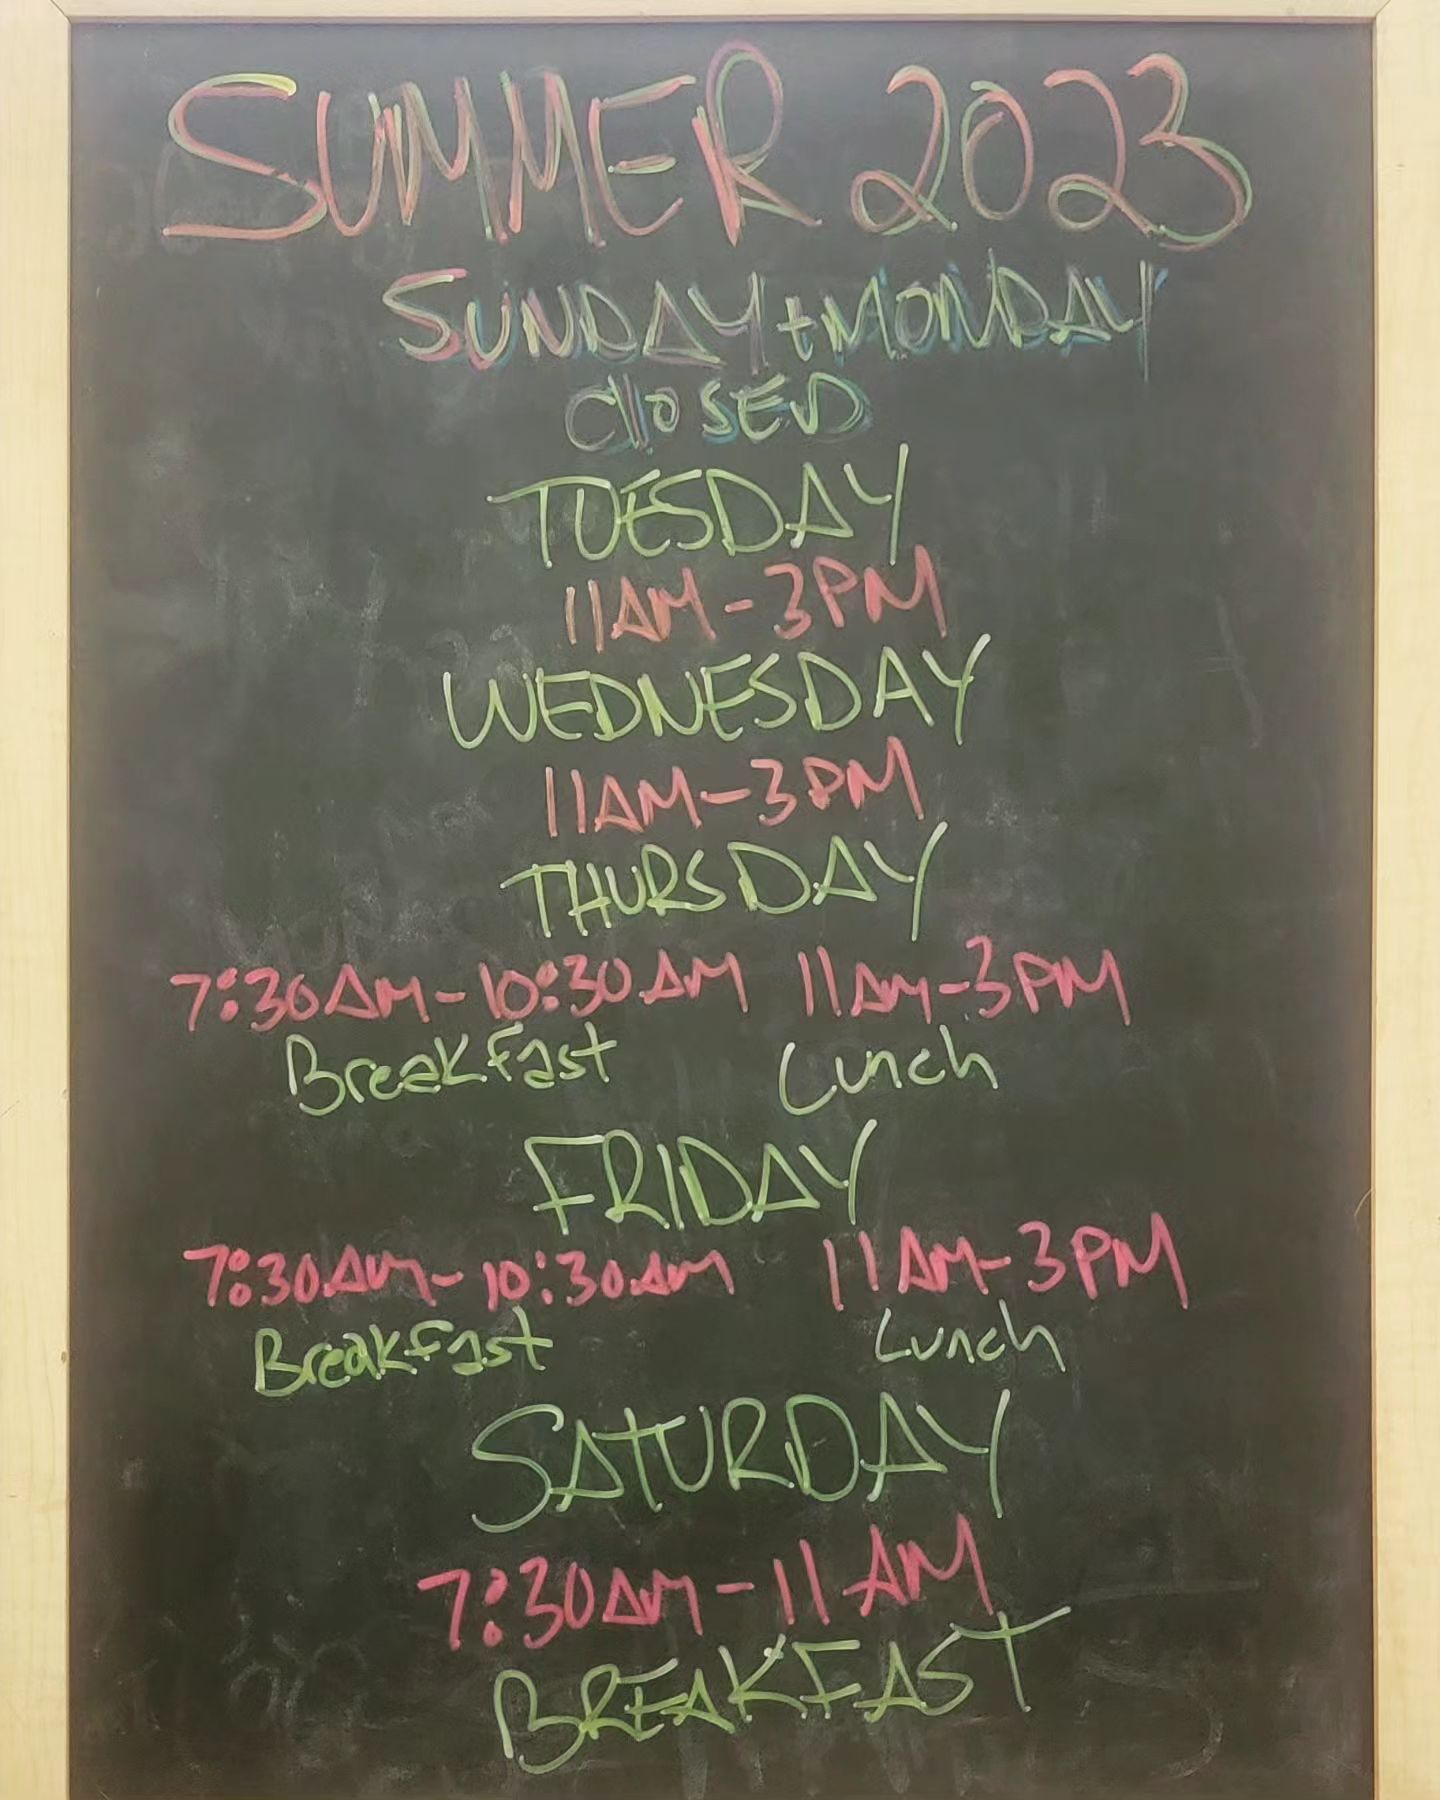 SUMMER 2023
SUNDAY + MONDAY
ClOSED
TUESDAY
11AM - 3PM
WEDNESDAY
11AM - 3PM
THURSDAY
7:30AM - 10:30AM 11AM - 3PM
Breakfast Lunch
FRIDAY
7:30AM - 10:30AM 11AM - 3PM
Breakfast Lunch
SATURDAY
7:30AM - 11AM
BREAKFAST